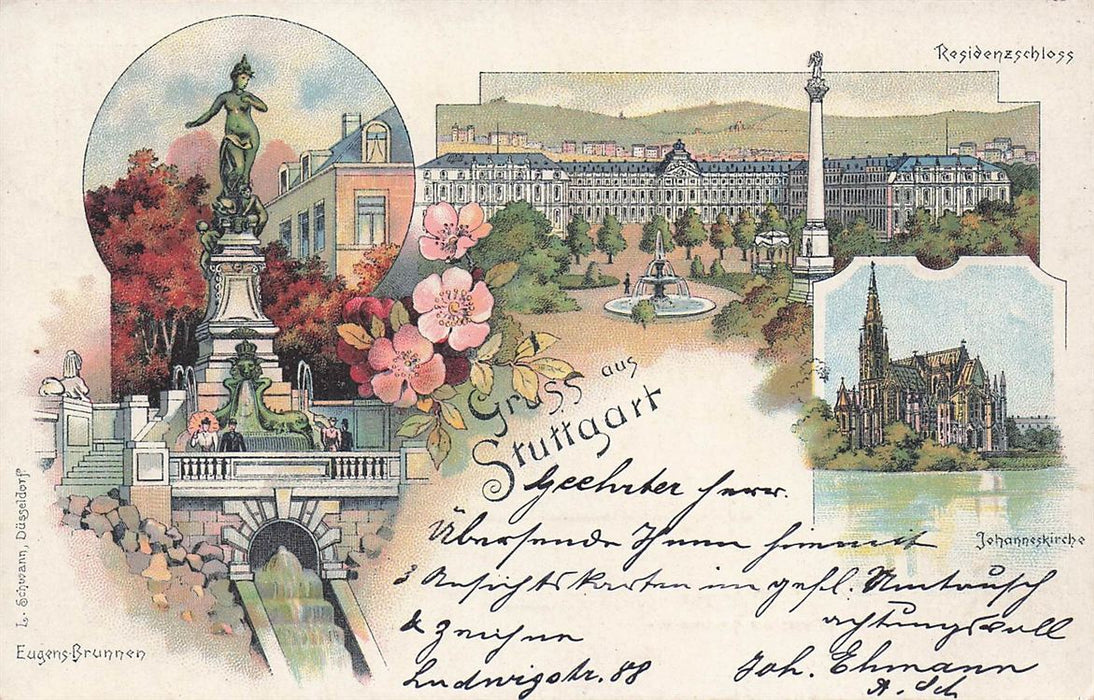 Residenzschloss
Gruss aus
Stuttgart
Geehrter Herr.
Übersende Ihnen hiermit
3 Ansichtskarten im gefl. Umtausch
& zeichne achtungsvoll
Ludwigstr. 88 Joh. Ehmann
A. Sch
Johanneskirche
Eugens-Brunnen
L. Schwann, Düsseldorf